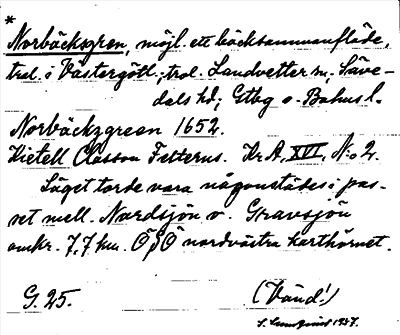 *
Norbäcksgren, möjl. ett bäcksammanflöde,
trol. i Västergötl.; trol. Landvetter sn, Säve-
dals hd; Gtbg o. Bohus l.
Norbäckzgreen 1652.
Kietell Classon Felterus. Kr A, XVI, No 2.
Läget torde vara någonstädes i pas-
set mell. Nordsjön o. Gravsjön
omkr. 7,7 km. ÖSÖ nordvästra karthörnet.
G. 25.
(Vänd!)
S. Lundquist 1937.